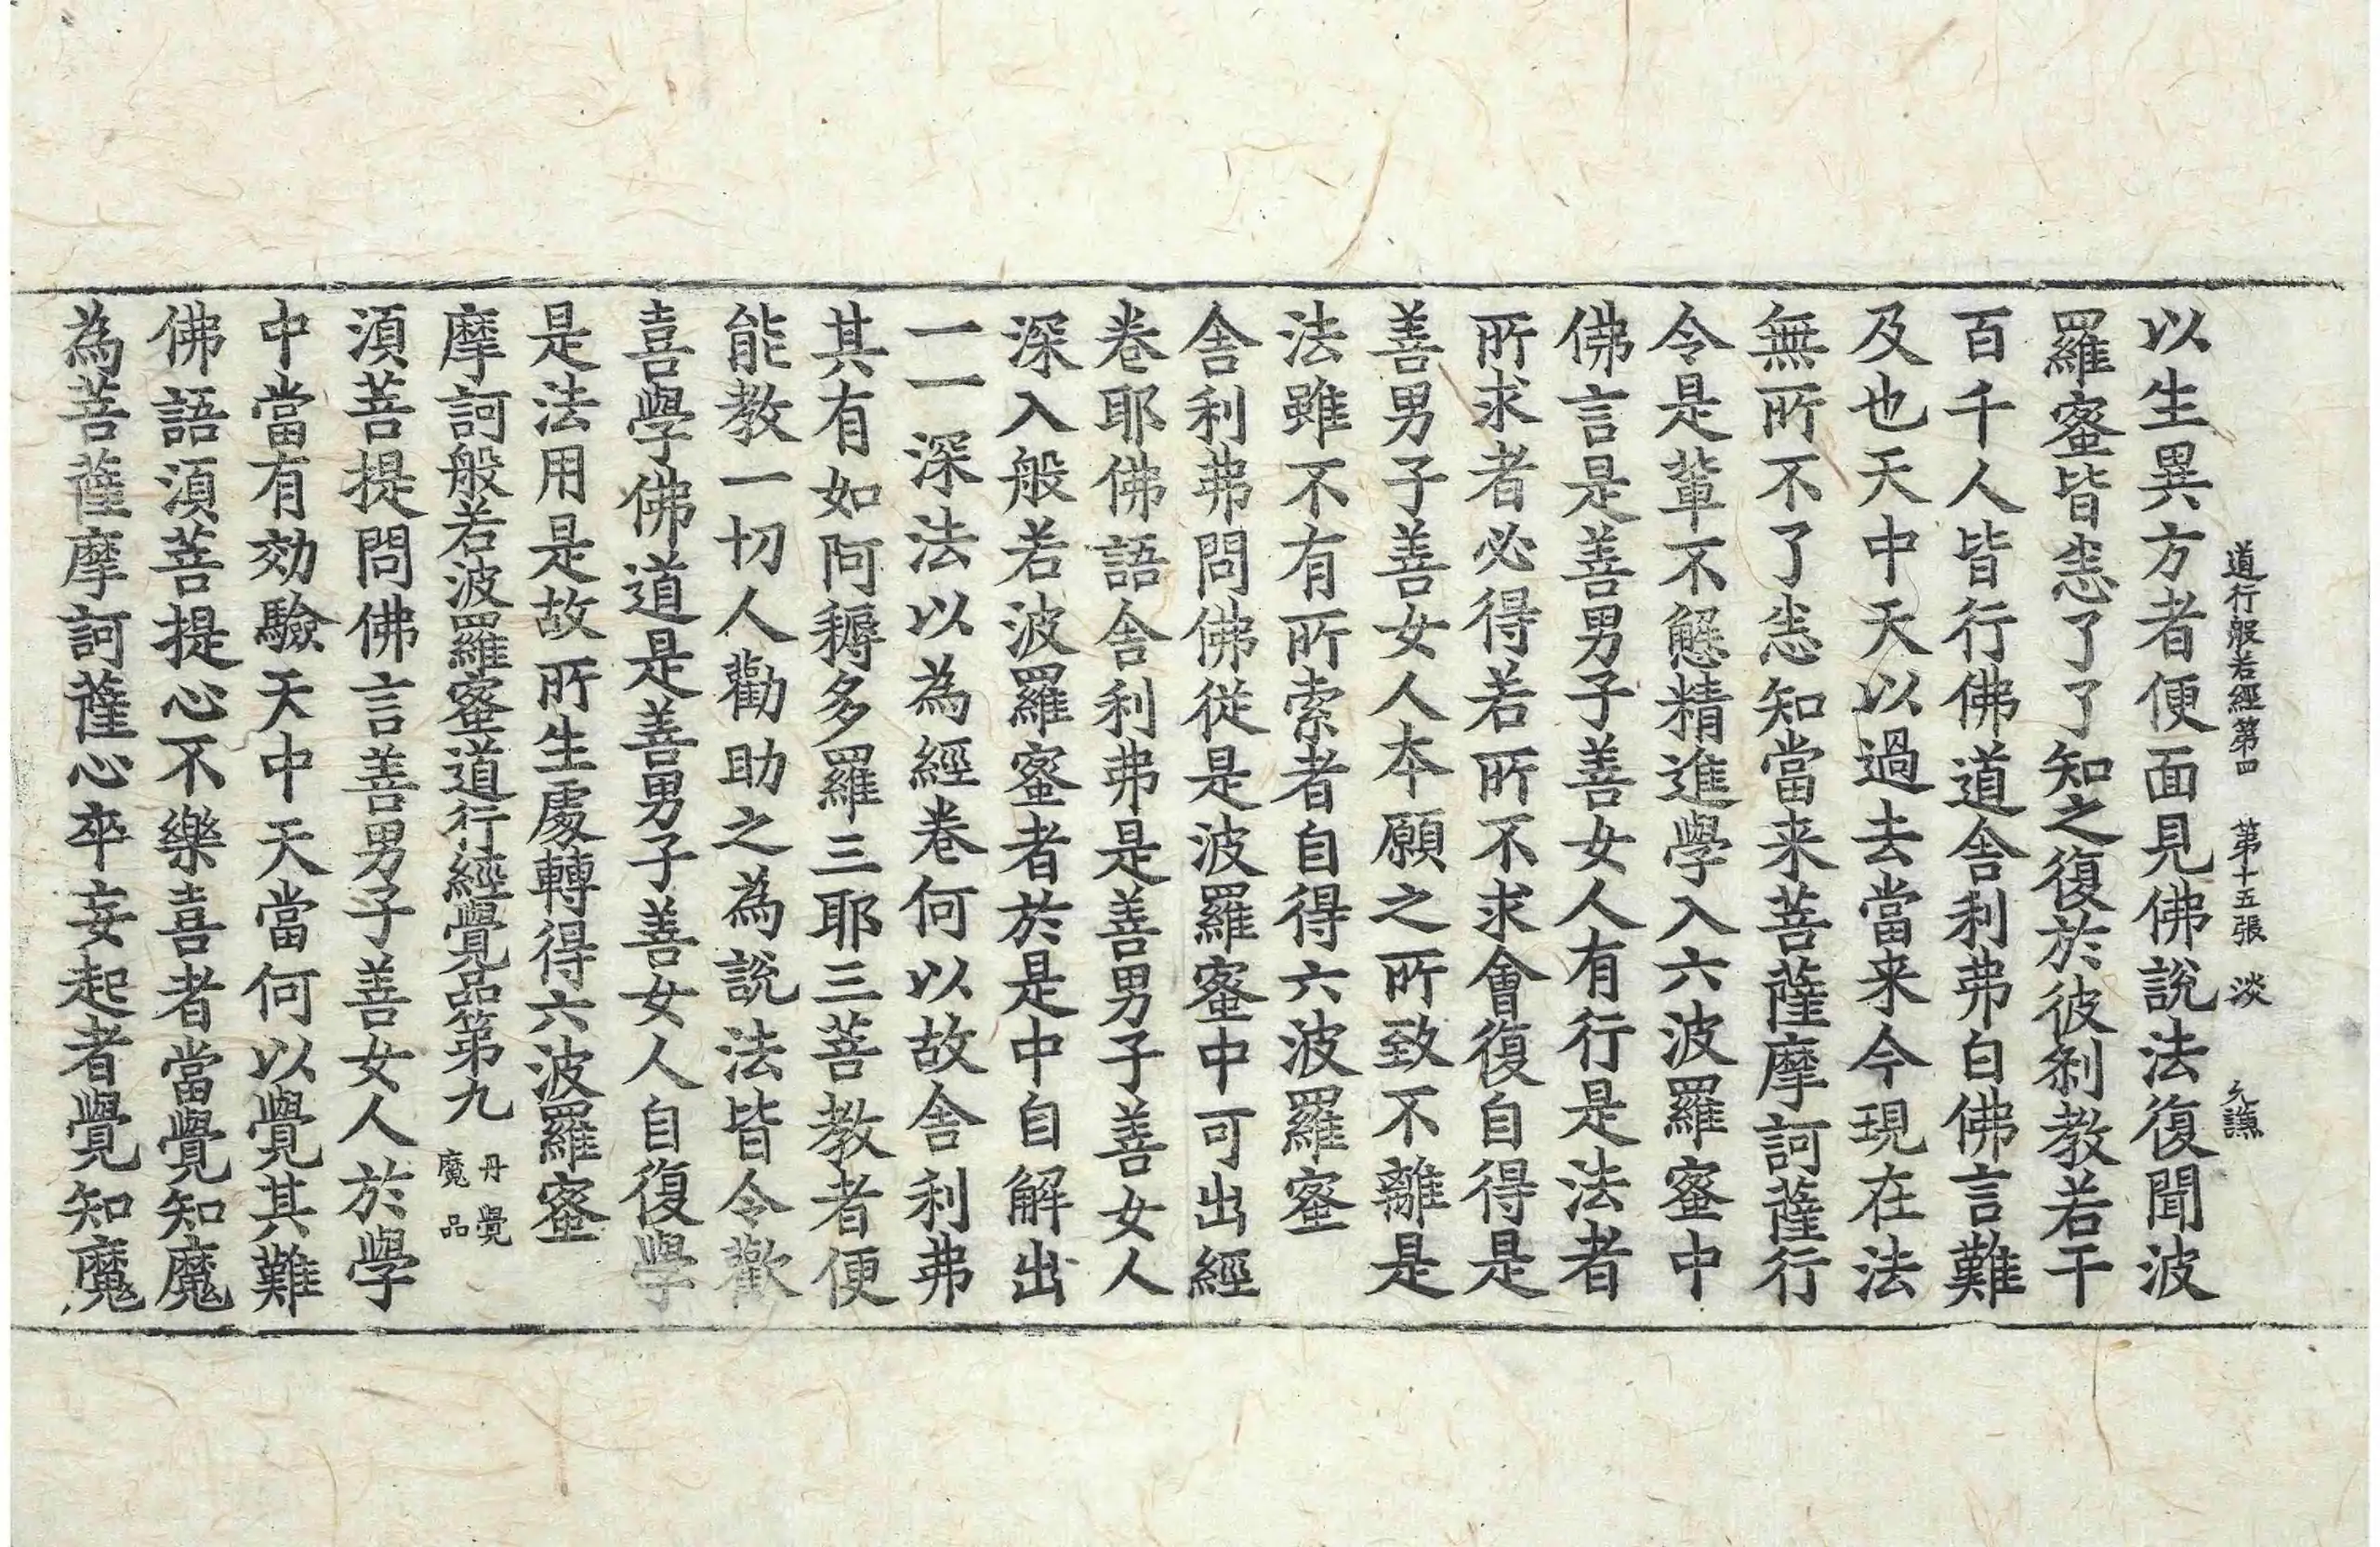 道行般若經第四 第十五張 淡 允謙
以生異方者便面見佛說法復聞波
羅蜜皆悉了了知之復於彼刹教若干
百千人皆行佛道舎利弗白佛言難
及也天中天以過去當来今現在法
無所不了悉知當来菩薩摩訶薩行
令是輩不懈精進學入六波羅蜜中
佛言是善男子善女人有行是法者
所求者必得若所不求會復自得是
善男子善女人本願之所致不離是
法雖不有所索者自得六波羅蜜
舎利弗問佛從是波羅蜜中可出經
卷耶佛語舎利弗是善男子善女人
深入般若波羅蜜者於是中自解出
一一深法以為經卷何以故舎利弗
其有如阿耨多羅三耶三菩教者便
能教一切人勸助之為說法皆令歡
喜學佛道是善男子善女人自復學
是法用是故所生處轉得六波羅蜜
摩訶般若波羅蜜道行經覺品第九 丹覺魔品
須菩提問佛言善男子善女人於學
中當有効驗天中天當何以覺其難
佛語須菩提心不樂喜者當覺知魔
為菩薩摩訶薩心卒妄起者覺知魔